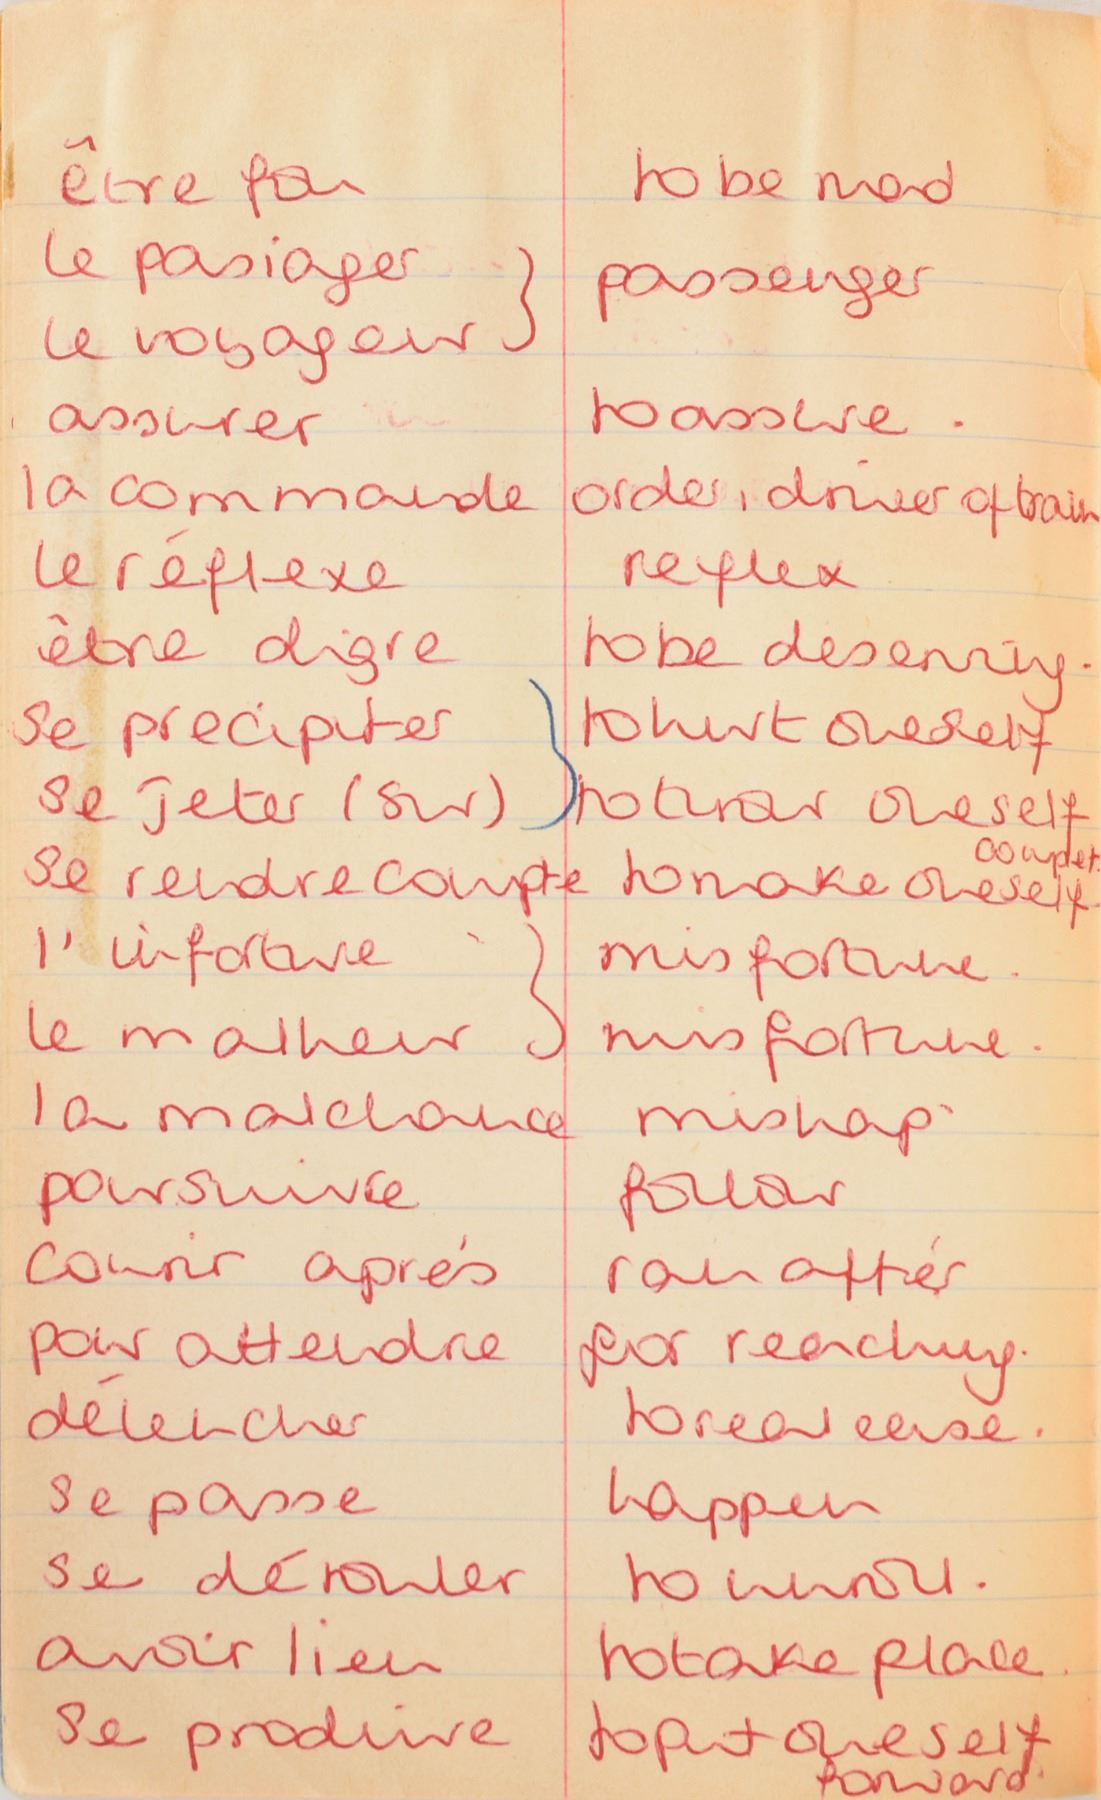 être fou to be mad
le passager } passenger
le voyageur
assurer to assure .
la commande order, driver of train
le réflexe reflex
être digre to be deserving.
se precipiter } to hurt oneself
se jeter (sur) to throw oneself
se rendre compte to make oneself compet.
l'infortune } misfortune.
le malheur misfortune.
la malchance mishap
poursuivre follow
courir aprés ran after
pour attendre for reaching.
délencher to realease.
se passe happen
se dérouler to unroll.
avoir lieu to take place.
se produire to put oneself
forward.